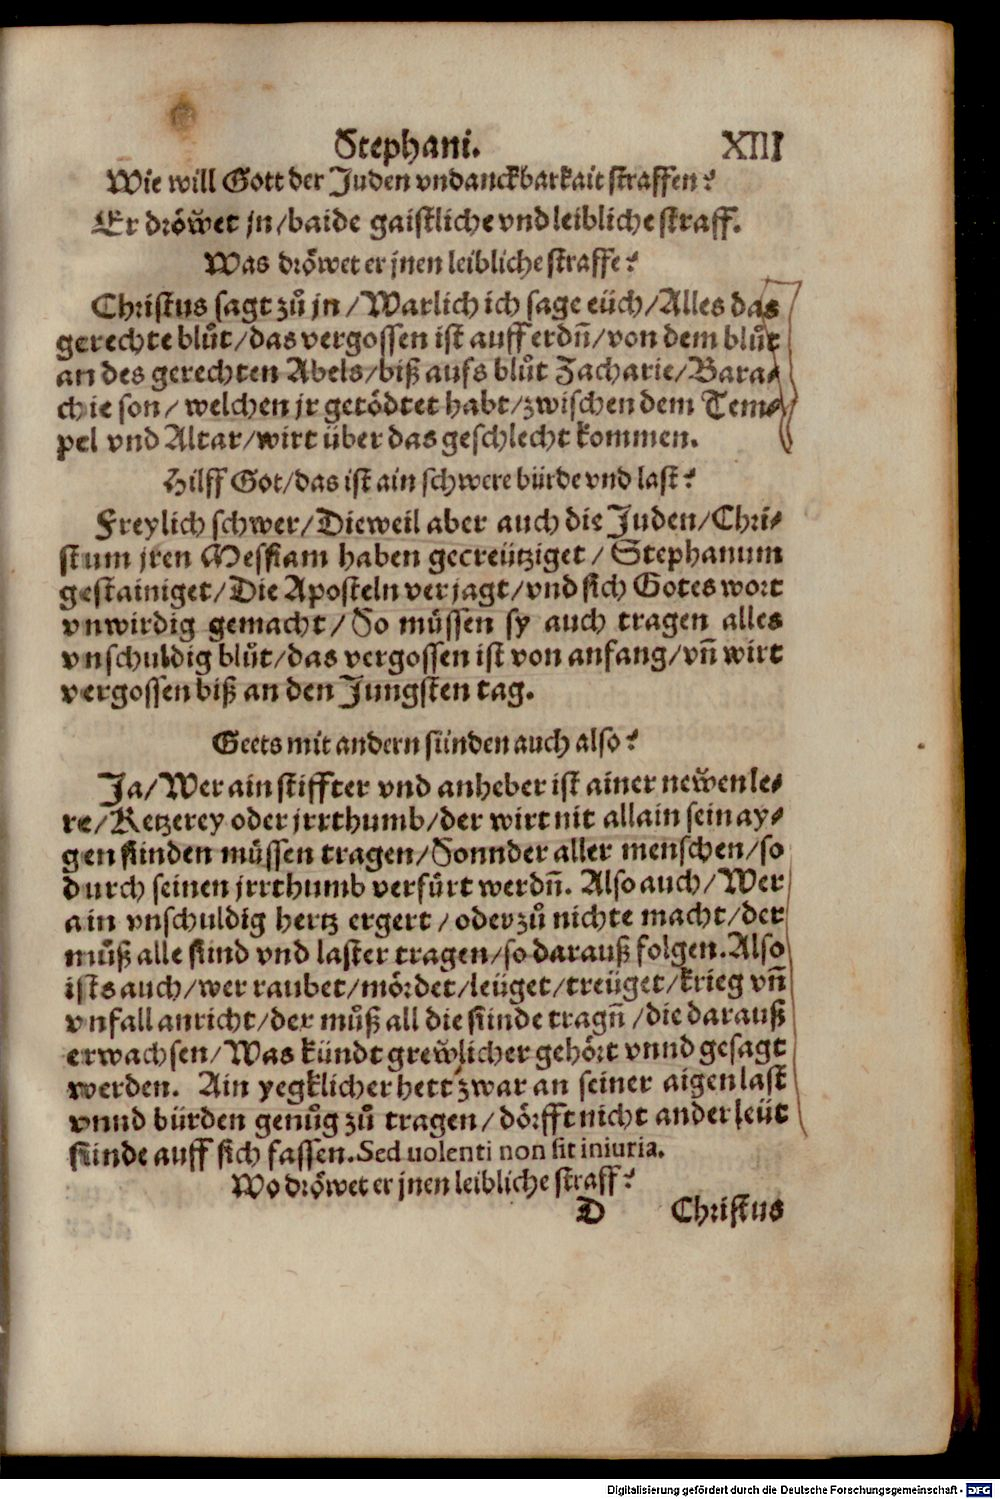 Stephani. XIII
Wie will Gott der Juden vndanckbarkait straffen?
Er dröwet jn/baide gaistliche vnd leibliche straff.
Was dröwet er jnen leibliche straffe?
Christus sagt zů jn/Warlich ich sage eüch/Alles das
gerechte blůt/das vergossen ist auff erdn̄/von dem blůt
an des gerechten Abels/biß aufs blůt Zacharie/Bara⸗
chie son/welchen jr getödtet habt/zwischen dem Tem⸗
pel vnd Altar/wirt über das geschlecht kommen.
Hilff Got/das ist ain schwere bürde vnd last?
Freylich schwer/Dieweil aber auch die Juden/Chri⸗
stum jren Messiam haben gecreütziget/Stephanum
gestainiget/Die Aposteln verjagt/vnd sich Gotes wort
vnwirdig gemacht/So müssen sy auch tragen alles
vnschuldig blůt/das vergossen ist von anfang/vn̄ wirt
vergossen biß an den Jungsten tag.
Geets mit andern sünden auch also?
Ja/Wer ain stiffter vnd anheber ist ainer newen le⸗
re/Ketzerey oder jrrthumb/der wirt nit allain sein ay⸗
gen sünden müssen tragen/Sonnder aller menschen/so
durch seinen jrrthumb verfürt werdn̄. Also auch/Wer
ain vnschuldig hertz ergert/oder zů nichte macht/der
můß alle sünd vnd laster tragen/so darauß folgen.Also
ists auch/wer raubet/mördet/leüget/treüget/krieg vn̄
vnfall anricht/der můß all die sünde tragn̄/die darauß
erwachsen/Was kündt grewlicher gehört vnnd gesagt
werden. Ain yegklicher hett zwar an seiner aigen last
vnnd bürden genůg zů tragen/dörfft nicht ander leüt
sünde auff sich fassen.Sed uolenti non fit iniuria.
Wo dröwet er jnen leibliche straff?
D Christus
Digitalisierung gefördert durch die Deutsche Forschungsgemeinschaft - DFG